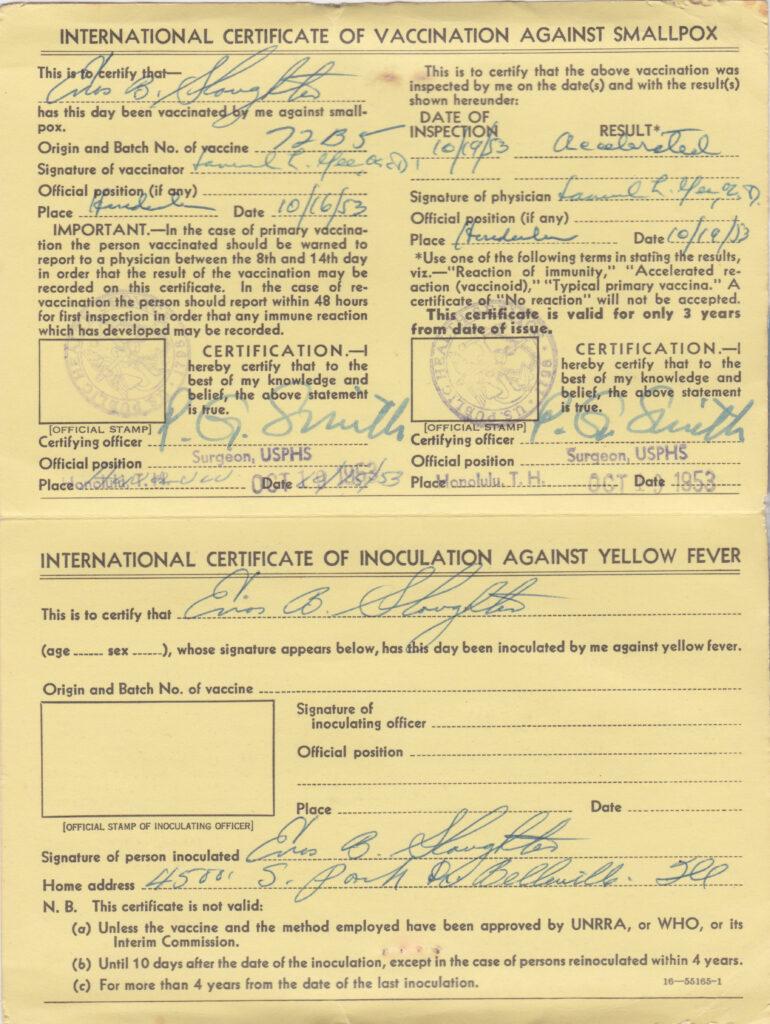 INTERNATIONAL CERTIFICATE OF VACCINATION AGAINST SMALLPOX
This is to certify that—
Enos B. Slaughter
has this day been vaccinated by me against small-
pox.
Origin and Batch No. of vaccine 72B5
Signature of vaccinator Samuel L.
Official position (if any)
Place Date 10/16/53
IMPORTANT.—In the case of primary vaccina-
tion the person vaccinated should be warned to
report to a physician between the 8th and 14th day
in order that the result of the vaccination may be
recorded on this certificate. In the case of re-
vaccination the person should report within 48 hours
for first inspection in order that any immune reaction
which has developed may be recorded.
CERTIFICATION.—I
hereby certify that to the
best of my knowledge and
belief, the above statement
is true.
[OFFICIAL STAMP]
Certifying officer P. G. Smith
Official position Surgeon, USPHS
Place Honolulu, T. H. Date OCT 19 1953
This is to certify that the above vaccination was
inspected by me on the date(s) and with the result(s)
shown hereunder:
DATE OF
INSPECTION RESULT*
10/19/53 Accelerated
Signature of physician Samuel L.
Official position (if any)
Place Date 10/19/53
*Use one of the following terms in stating the results,
viz.—"Reaction of immunity," "Accelerated re-
action (vaccinoid)," "Typical primary vaccina." A
certificate of "No reaction" will not be accepted.
This certificate is valid for only 3 years
from date of issue.
U.S. PUBLIC HEA
CERTIFICATION.—I
hereby certify that to the
best of my knowledge and
belief, the above statement
is true.
[OFFICIAL STAMP]
Certifying officer P. G. Smith
Official position Surgeon, USPHS
Place Honolulu, T. H. Date OCT 19 1953
INTERNATIONAL CERTIFICATE OF INOCULATION AGAINST YELLOW FEVER
This is to certify that Enos B. Slaughter
(age ..... sex .....), whose signature appears below, has this day been inoculated by me against yellow fever.
Origin and Batch No. of vaccine
Signature of
inoculating officer
Official position
Place Date
[OFFICIAL STAMP OF INOCULATING OFFICER]
Signature of person inoculated Enos B. Slaughter
Home address 4500 S. Park Dr Belleville. Ill
N. B. This certificate is not valid:
(a) Unless the vaccine and the method employed have been approved by UNRRA, or WHO, or its
Interim Commission.
(b) Until 10 days after the date of the inoculation, except in the case of persons reinoculated within 4 years.
(c) For more than 4 years from the date of the last inoculation.
16—55165-1